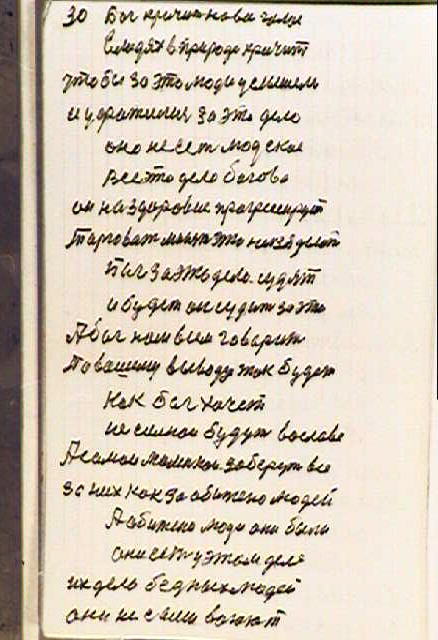 30 Бог кричит нова голос
в людях в природе кричит
чтобы за это люди услышали
и уражились за это дело
оно не сет людское
все это дело богово
он на здоровье прогресирует
Торговат этим нельзя
Бог за это дело судят
и будет он судит за это
А бог нам всем говорит
По вашему выводу так будет
как бог хочет
не силной будут во славе
А самои маленкои заберут все
за них как за обижено людей
А обижено люди они были
они сет у этом деле
их дело бедных людей
они не сами воюют